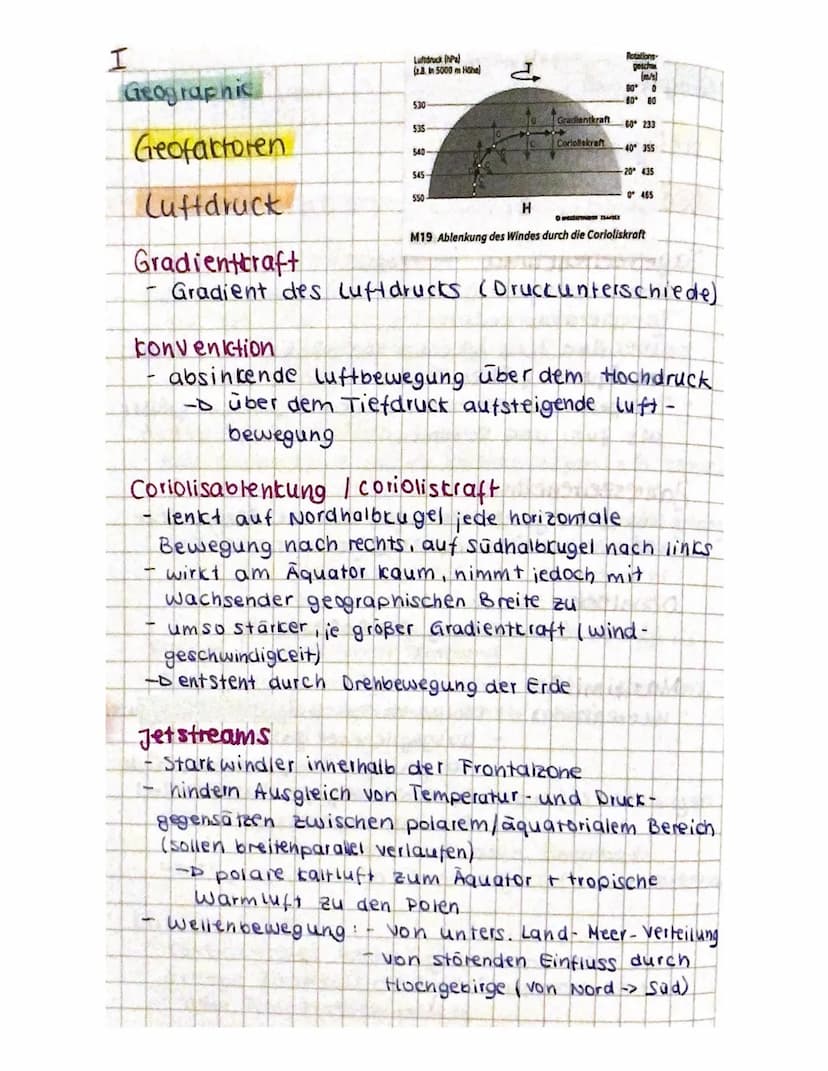 I
Geographie
Geofaktoren
Luftdruck
Luftdruck (hPa)
(z.B. in 5000 m Höhe)
T
Rotations-
geschw.
(m/s)
90° 0
80° 80
60° 233
40° 355
20° 435
0° 465
530
535
540
545
550
G
Gradientkraft
C
Corioliskraft
H
M19 Ablenkung des Windes durch die Corioliskraft
Gradientkraft
- Gradient des Luftdrucks (Druckunterschiede)
Konvenktion
- absinkende Luftbewegung über dem Hochdruck
→ über dem Tiefdruck aufsteigende Luft-
bewegung
Coriolisablenkung / Corioliskraft
- lenkt auf Nordhalbkugel jede horizontale
Bewegung nach rechts, auf Südhalbkugel nach links
- wirkt am Äquator kaum, nimmt jedoch mit
wachsender geographischen Breite zu
- umso stärker, je größer Gradientkraft (Wind-
geschwindigkeit)
→ entsteht durch Drehbewegung der Erde
Jetstreams
- Starkwindler innerhalb der Frontalzone
- hindern Ausgleich von Temperatur- und Druck-
gegensätzen zwischen polarem/äquatorialem Bereich
(sollen breitenparallel verlaufen)
→ polare Kaltluft zum Äquator + tropische
Warmluft zu den Polen
- Wellenbewegung: - von unters. Land-Meer-Verteilung
- von störenden Einfluss durch
Hochgebirge (von Nord -> Süd)